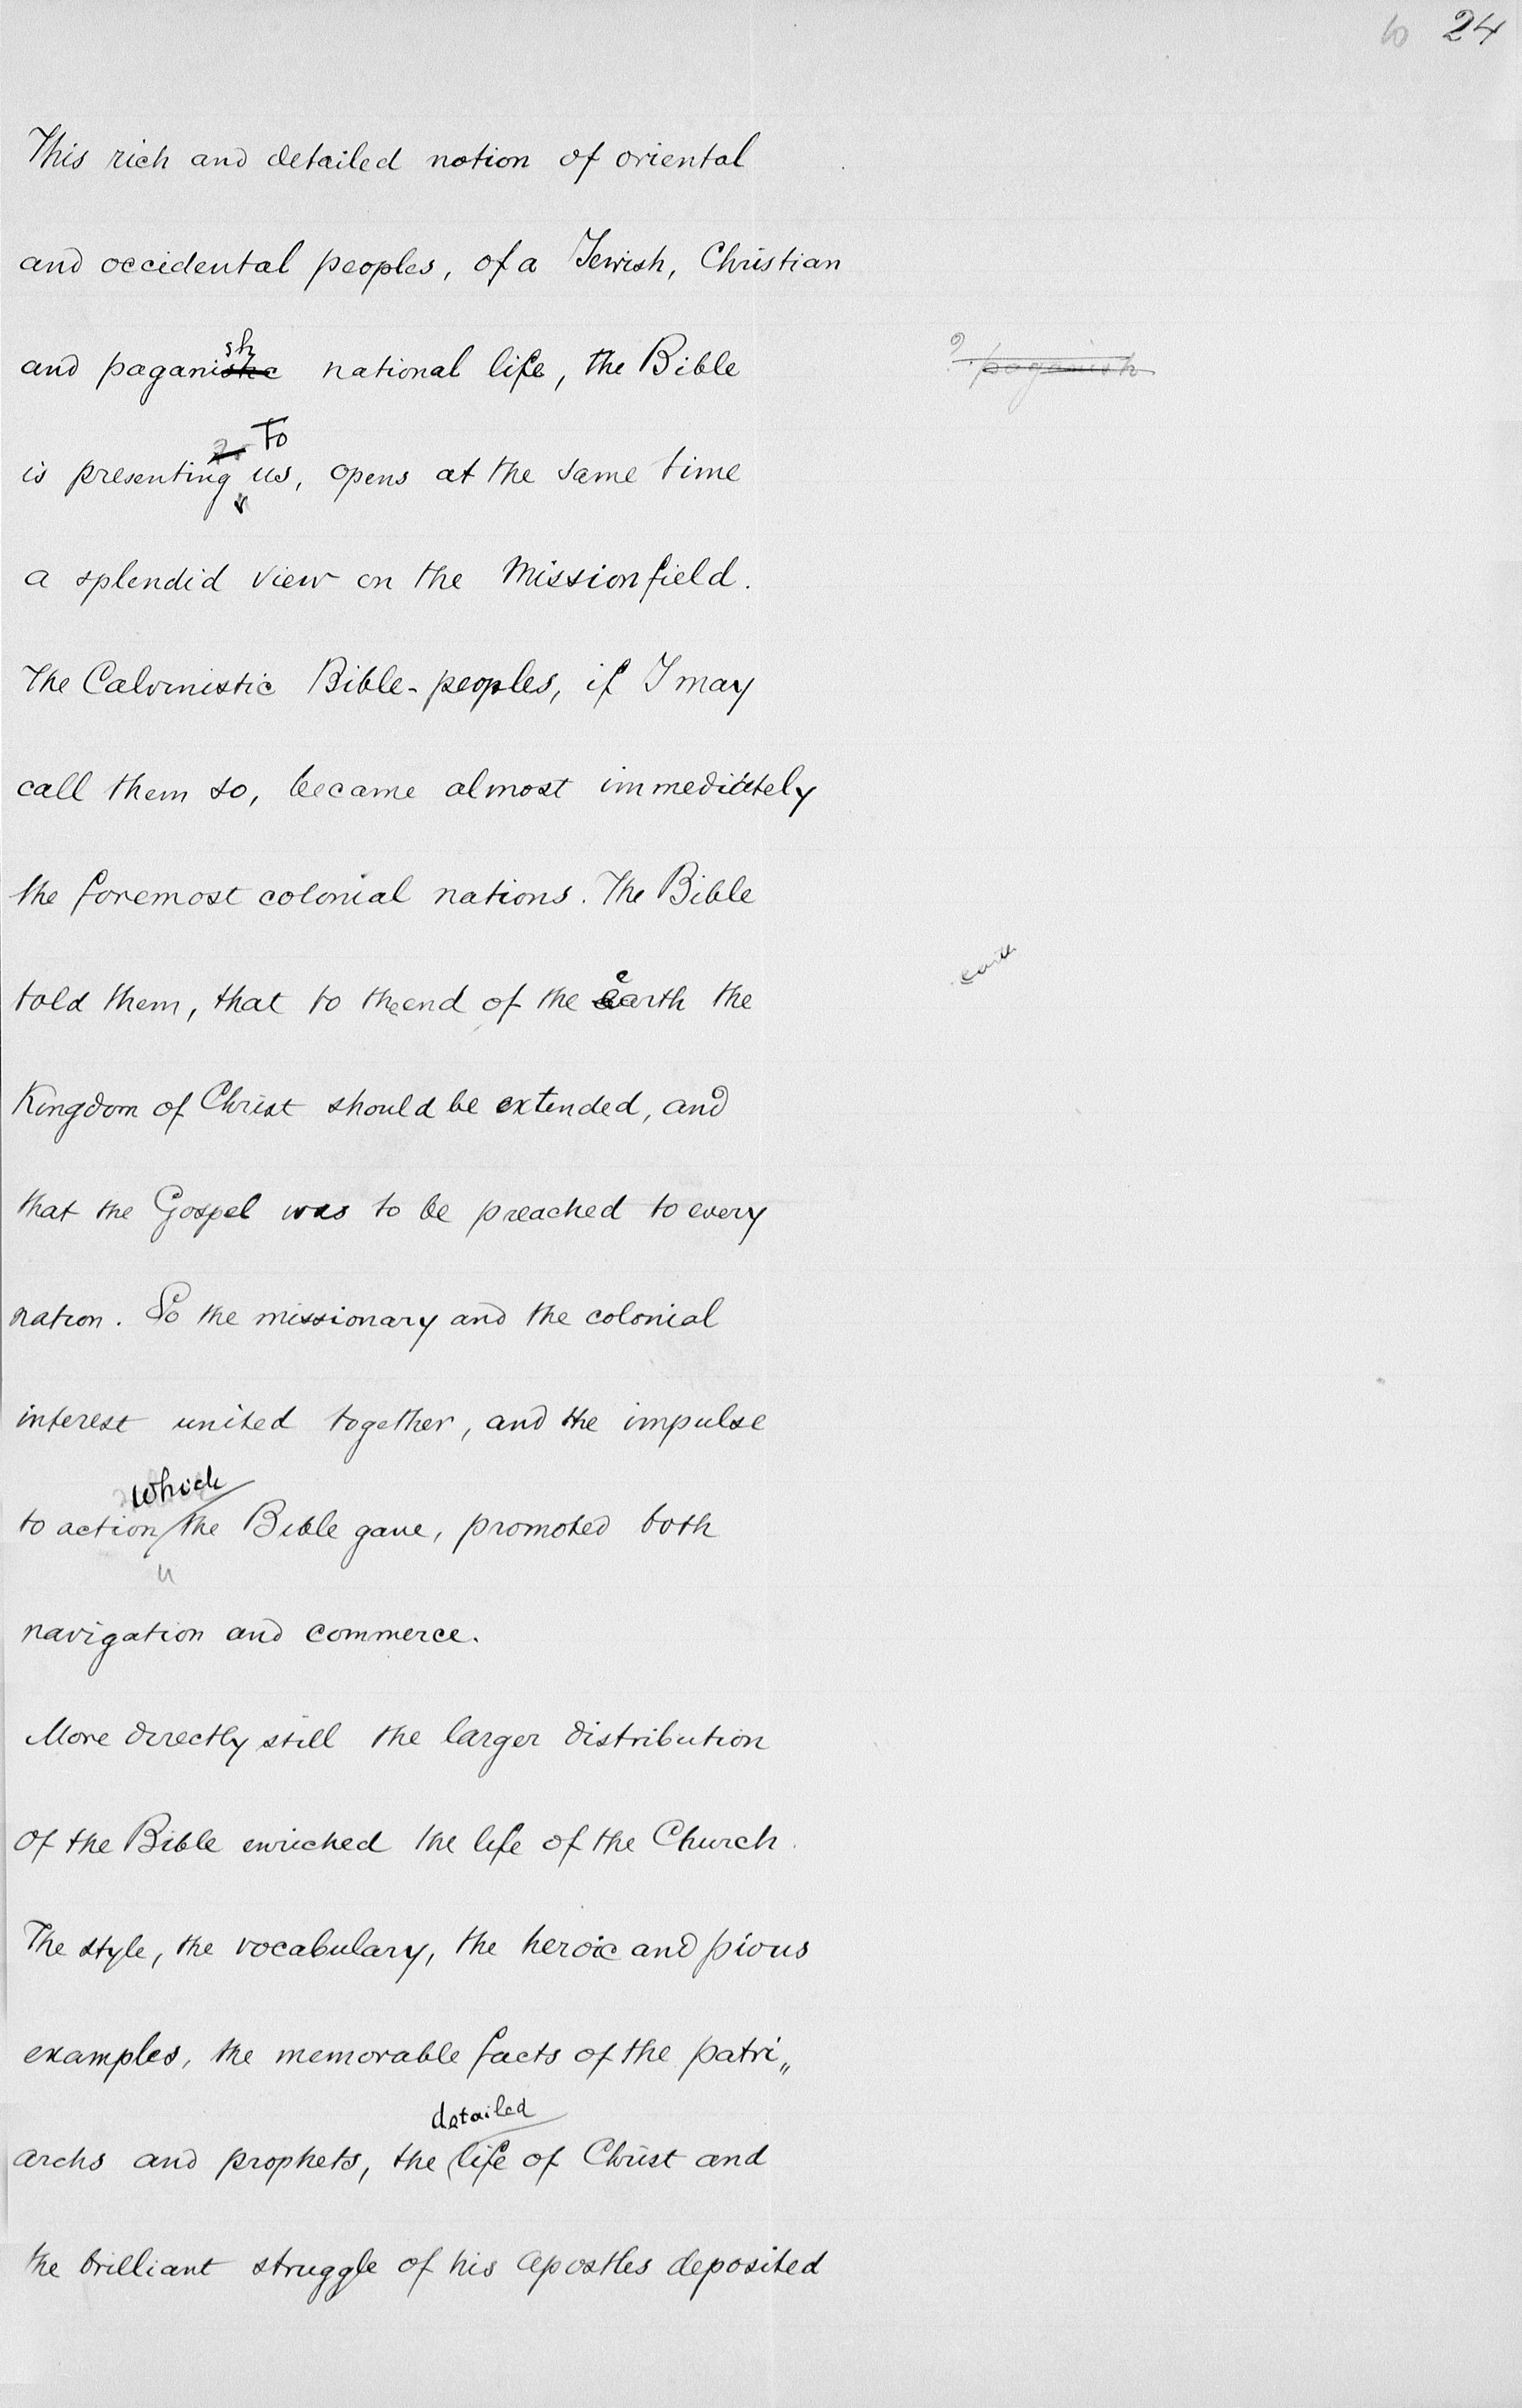 24
This rich and detailed notion of oriental
and occidental peoples, of a Jewish, Christian
and paganish national life, the Bible
paganish
is presenting to us, opens at the same time
a splendid view on the Missionfield.
The Calvinistic Bible-peoples, if I may
call them so, became almost immediately
the foremost colonial nations. The Bible
told them, that to the end of the earth the
Kingdom of Christ should be extended, and
that the Gospel was to be preached to every
nation. So the missionary and the colonial
interest united together, and the impulse
to action which the Bible gave, promoted both
navigation and commerce.
More directly still the larger distribution
of the Bible enriched the life of the Church.
The style, the vocabulary, the heroic and pious
examples, the memorable facts of the patri„
archs and prophets, the detailed life of Christ and
the brilliant struggle of his Apostles deposited